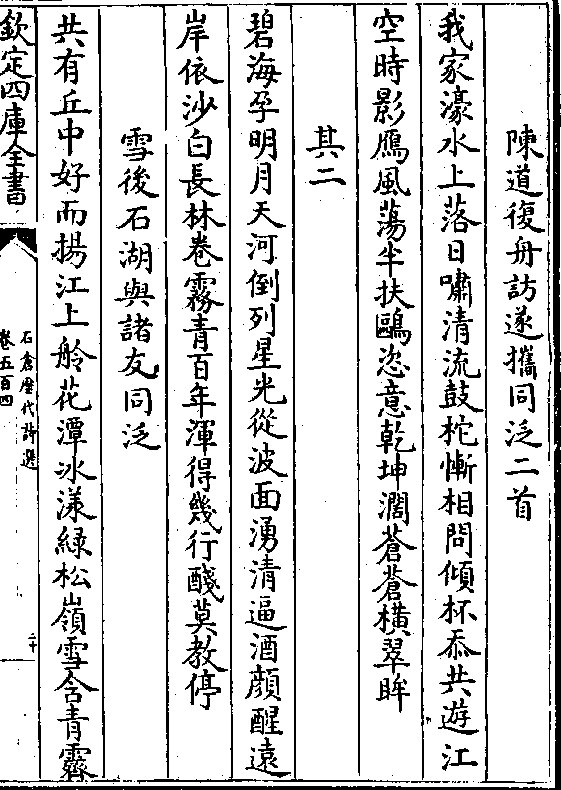 陳道復舟訪遂攜同泛二首
我家濠水上落日嘯清流鼓枻慚相問傾杯忝共遊江
空時影鴈風蕩半扶鷗恣意乾坤濶蒼蒼橫翠眸
其二
碧海孕明月天河倒列星光從波面湧清逼酒顔醒遠
岸依沙白長林卷霧青百年渾得幾行醆莫教停
雪後石湖與諸友同泛
共有丘中好而揚江上舲花潭冰漾緑松嶺雪含青霽
欽定四庫全書
石倉歴代詩選
卷五百四
二十